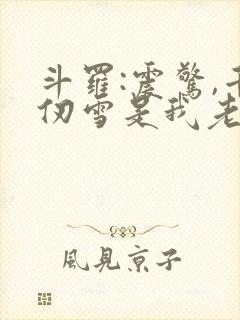 斗羅:震驚,千
仞雪是我老
風見京子